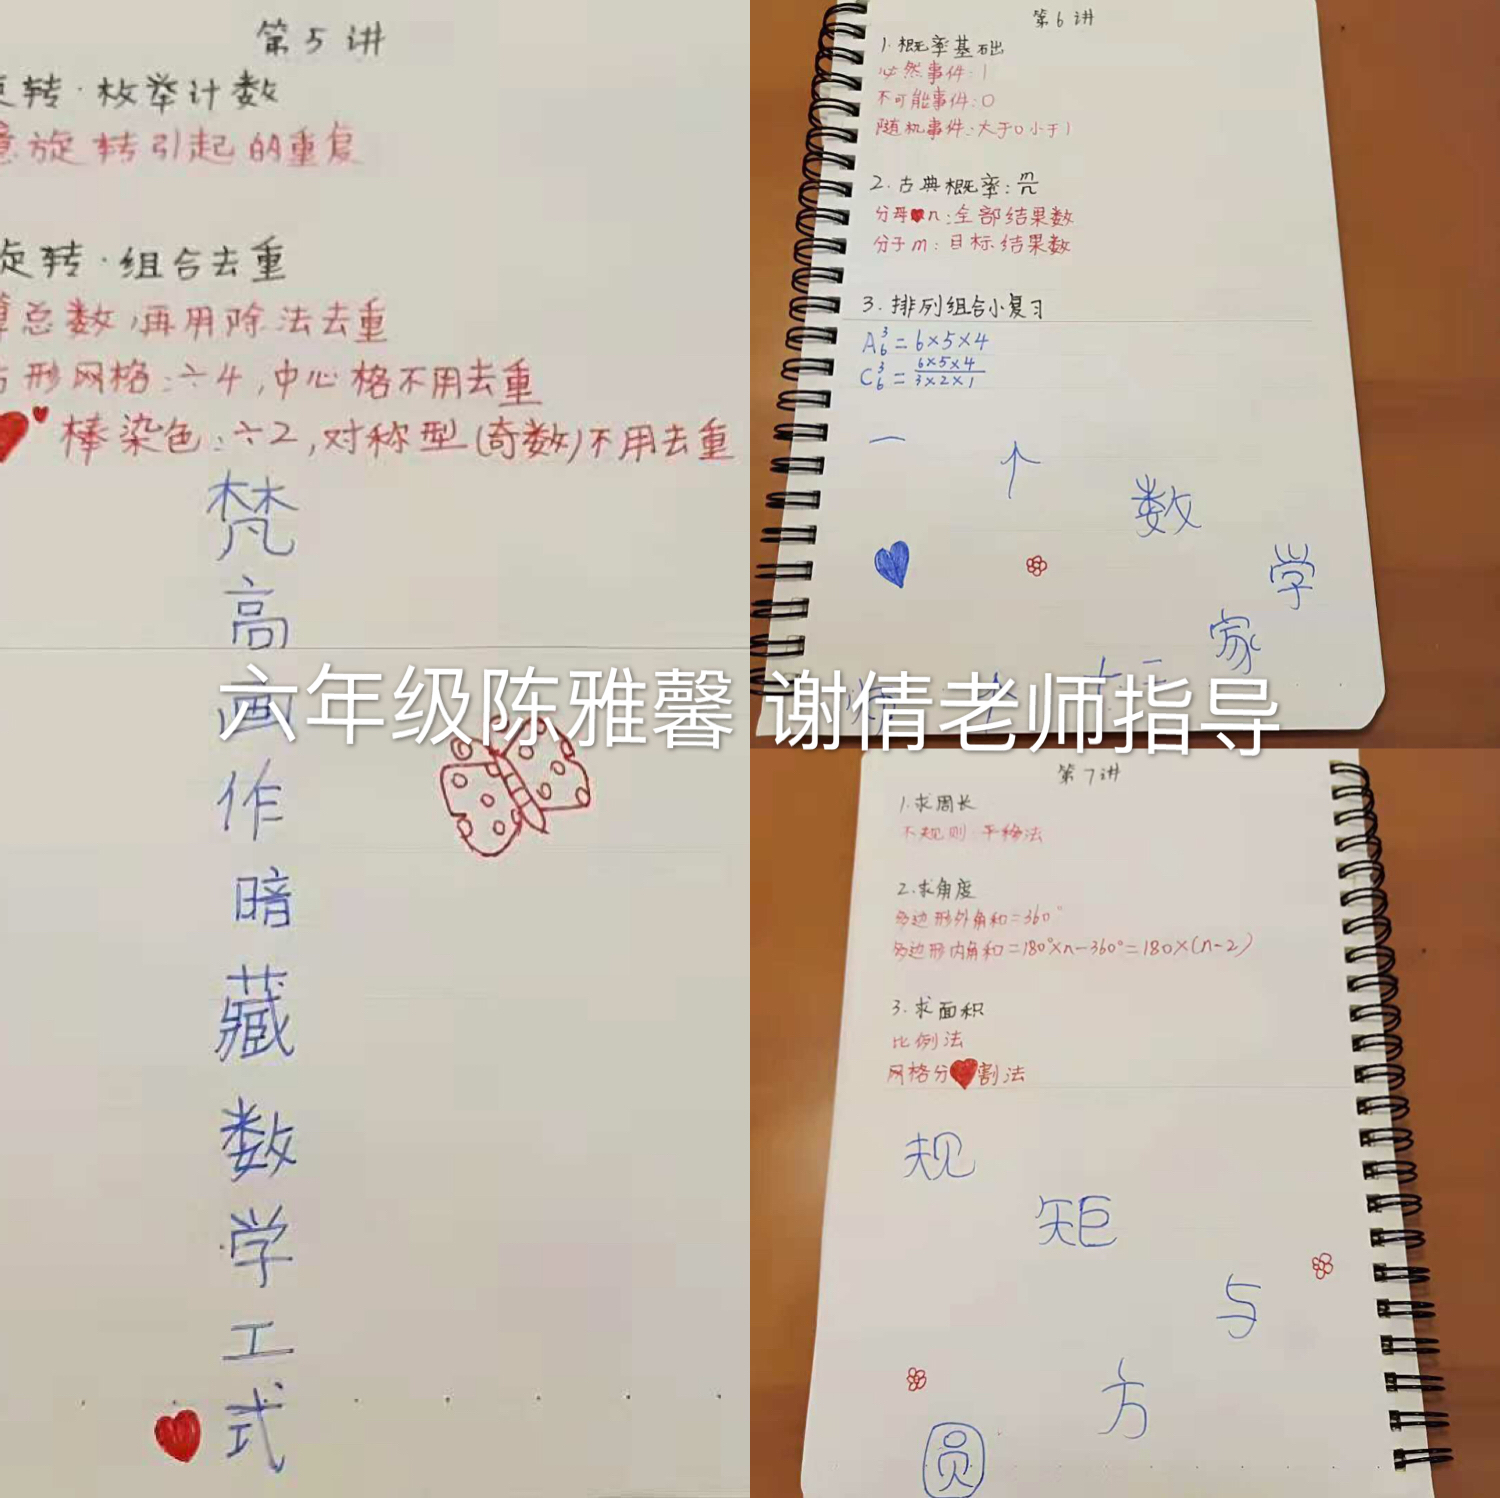 第5讲
转·枚举计数
意旋转引起的重复
旋转·组合去重
算总数,再用除法去重
方形网格:÷4,中心格不用去重
棒染色:÷2,对称型(奇数)不用去重
梵
高
画
作
暗
藏
数
学
工
式
六年级陈雅馨 谢倩老师指导
第6讲
1.概率基础
必然事件:1
不可能事件:0
随机事件:大于0小于1
2.古典概率:m/n
分母n:全部结果数
分子m:目标结果数
3.排列组合小复习
A³₆=6×5×4
C³₆=6×5×4/3×2×1
一
个
数
学
家
十二
个
第7讲
1.求周长
不规则:平移法
2.求角度
多边形外角和=360°
多边形内角和=180°×n-360°=180×(n-2)
3.求面积
比例法
网格分割法
规
矩
与
方
圆